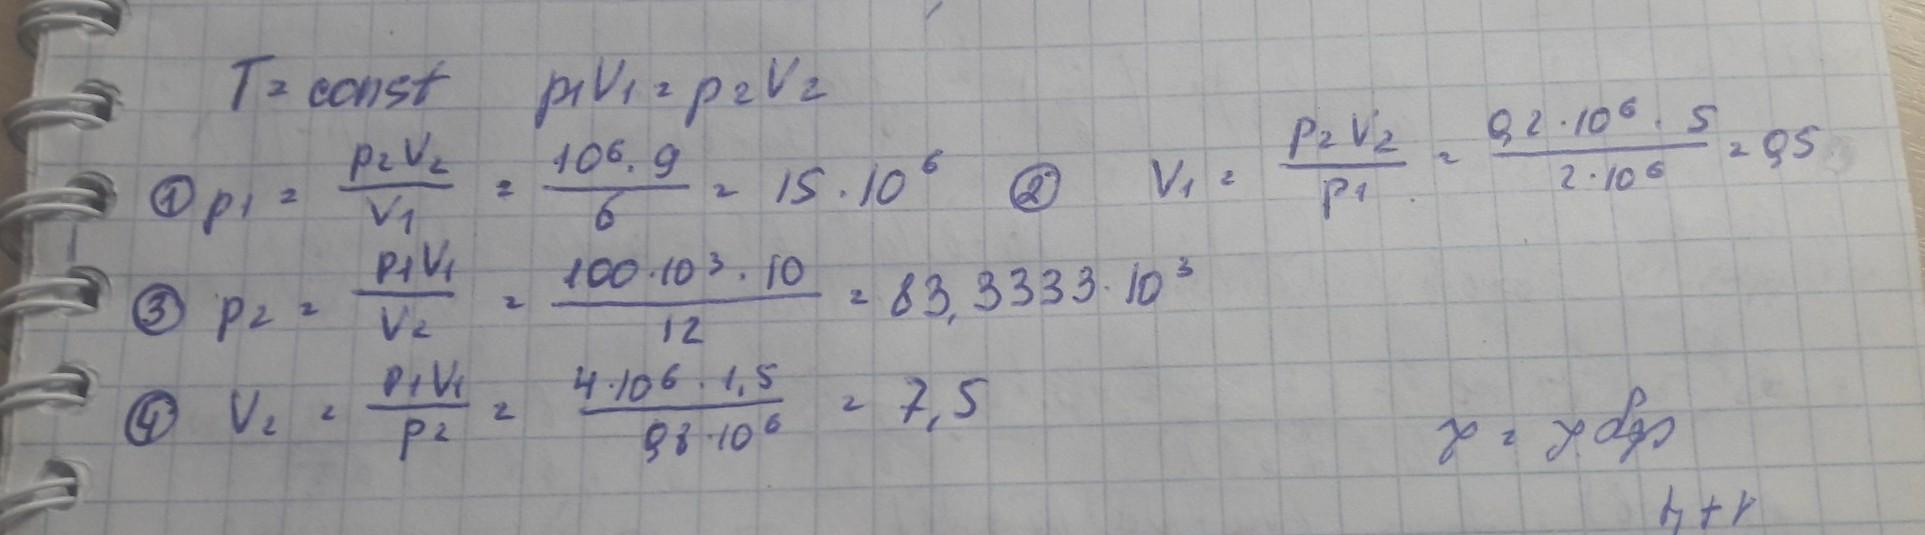 T = const p₁V₁ = p₂V₂
① p₁ = p₂V₂/V₁ = 10⁶·9/6 = 15·10⁶ ② V₁ = p₂V₂/p₁ = 0,2·10⁶·5/2·10⁶ = 0,5
③ p₂ = p₁V₁/V₂ = 100·10³·10/12 = 83,3333·10³
④ V₂ = p₁V₁/p₂ = 4·10⁶·1,5/0,8·10⁶ = 7,5